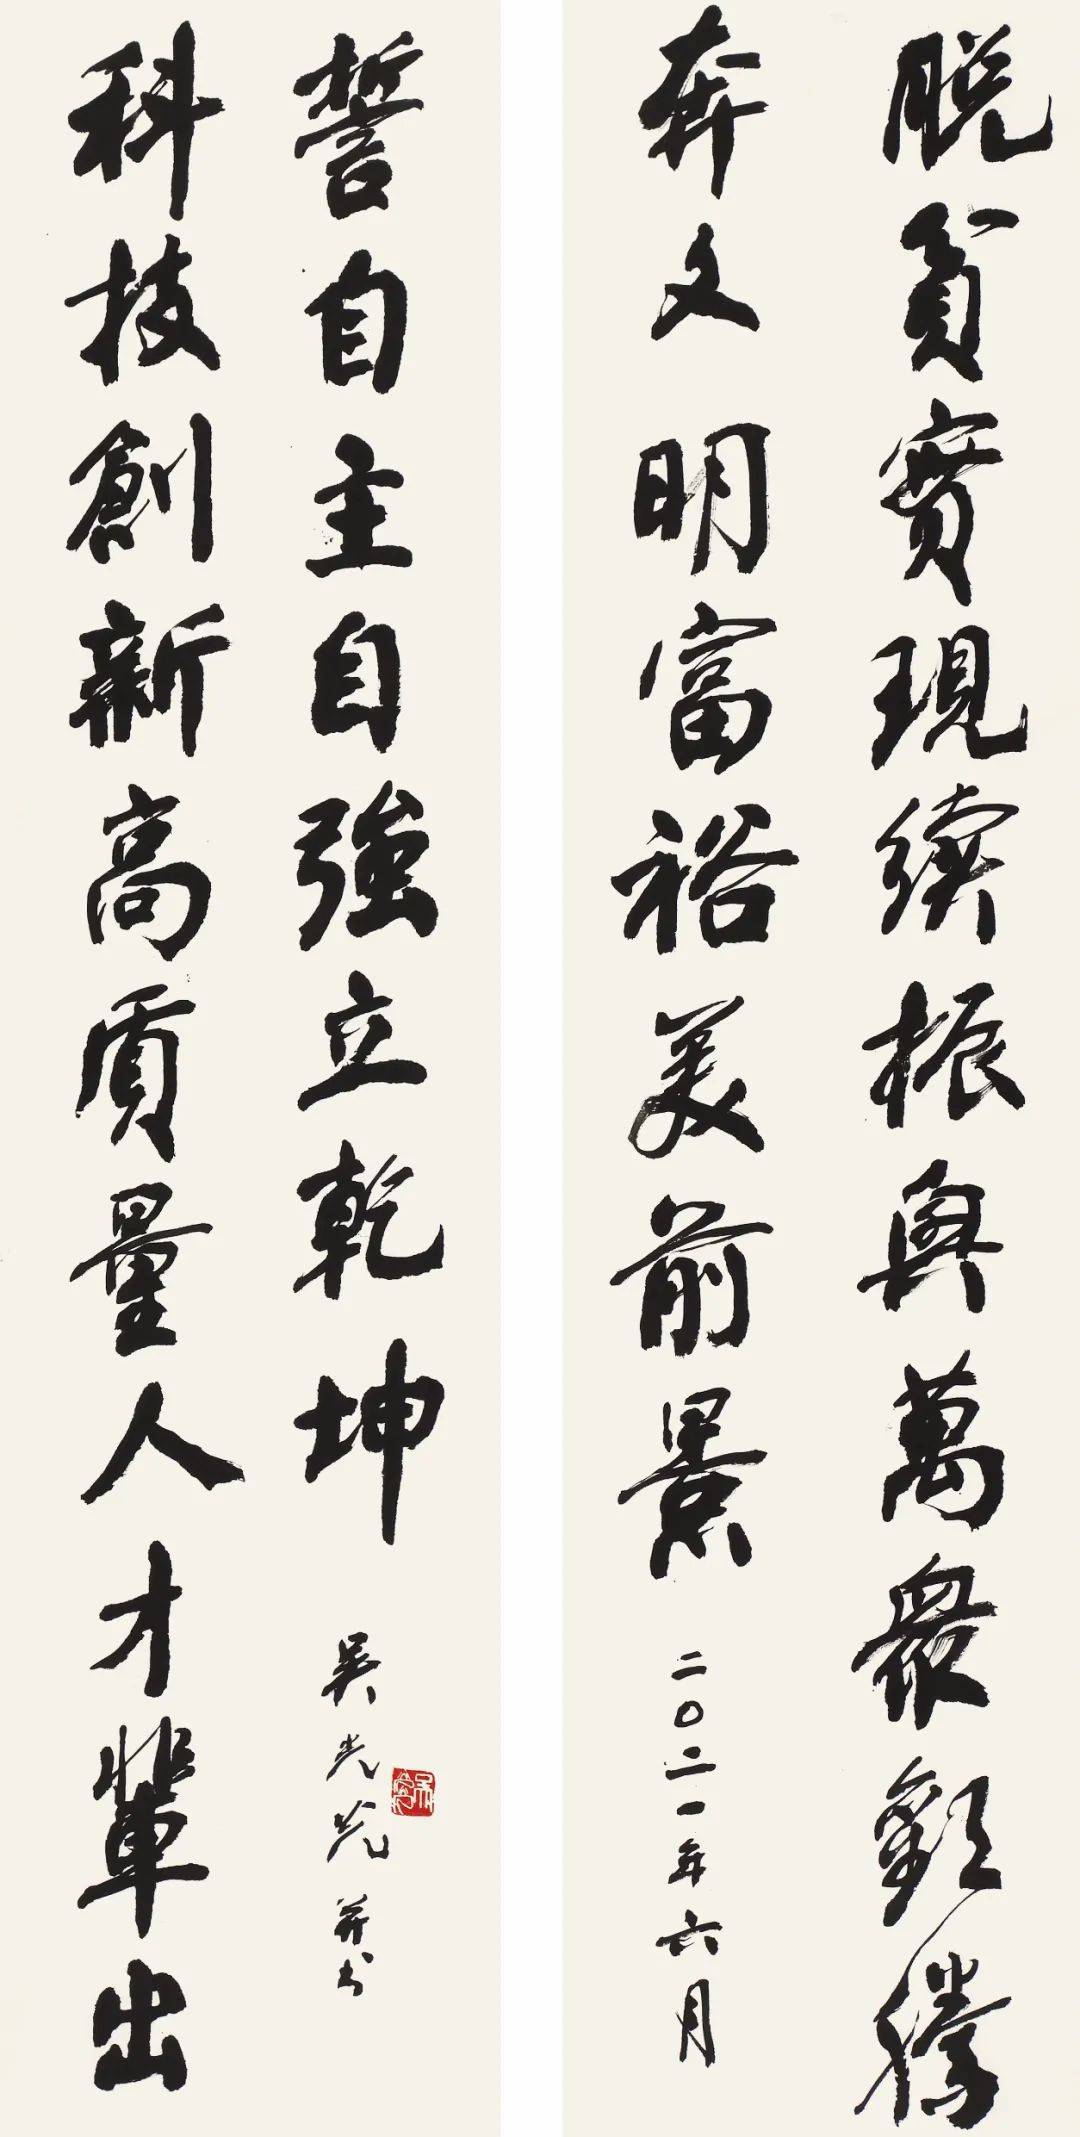 脫貧實現續振興萬衆歡騰
奔文明富裕美前景
二〇二一年六月
科技創新高質量人才輩出
誓自主自強立乾坤
吴光并书